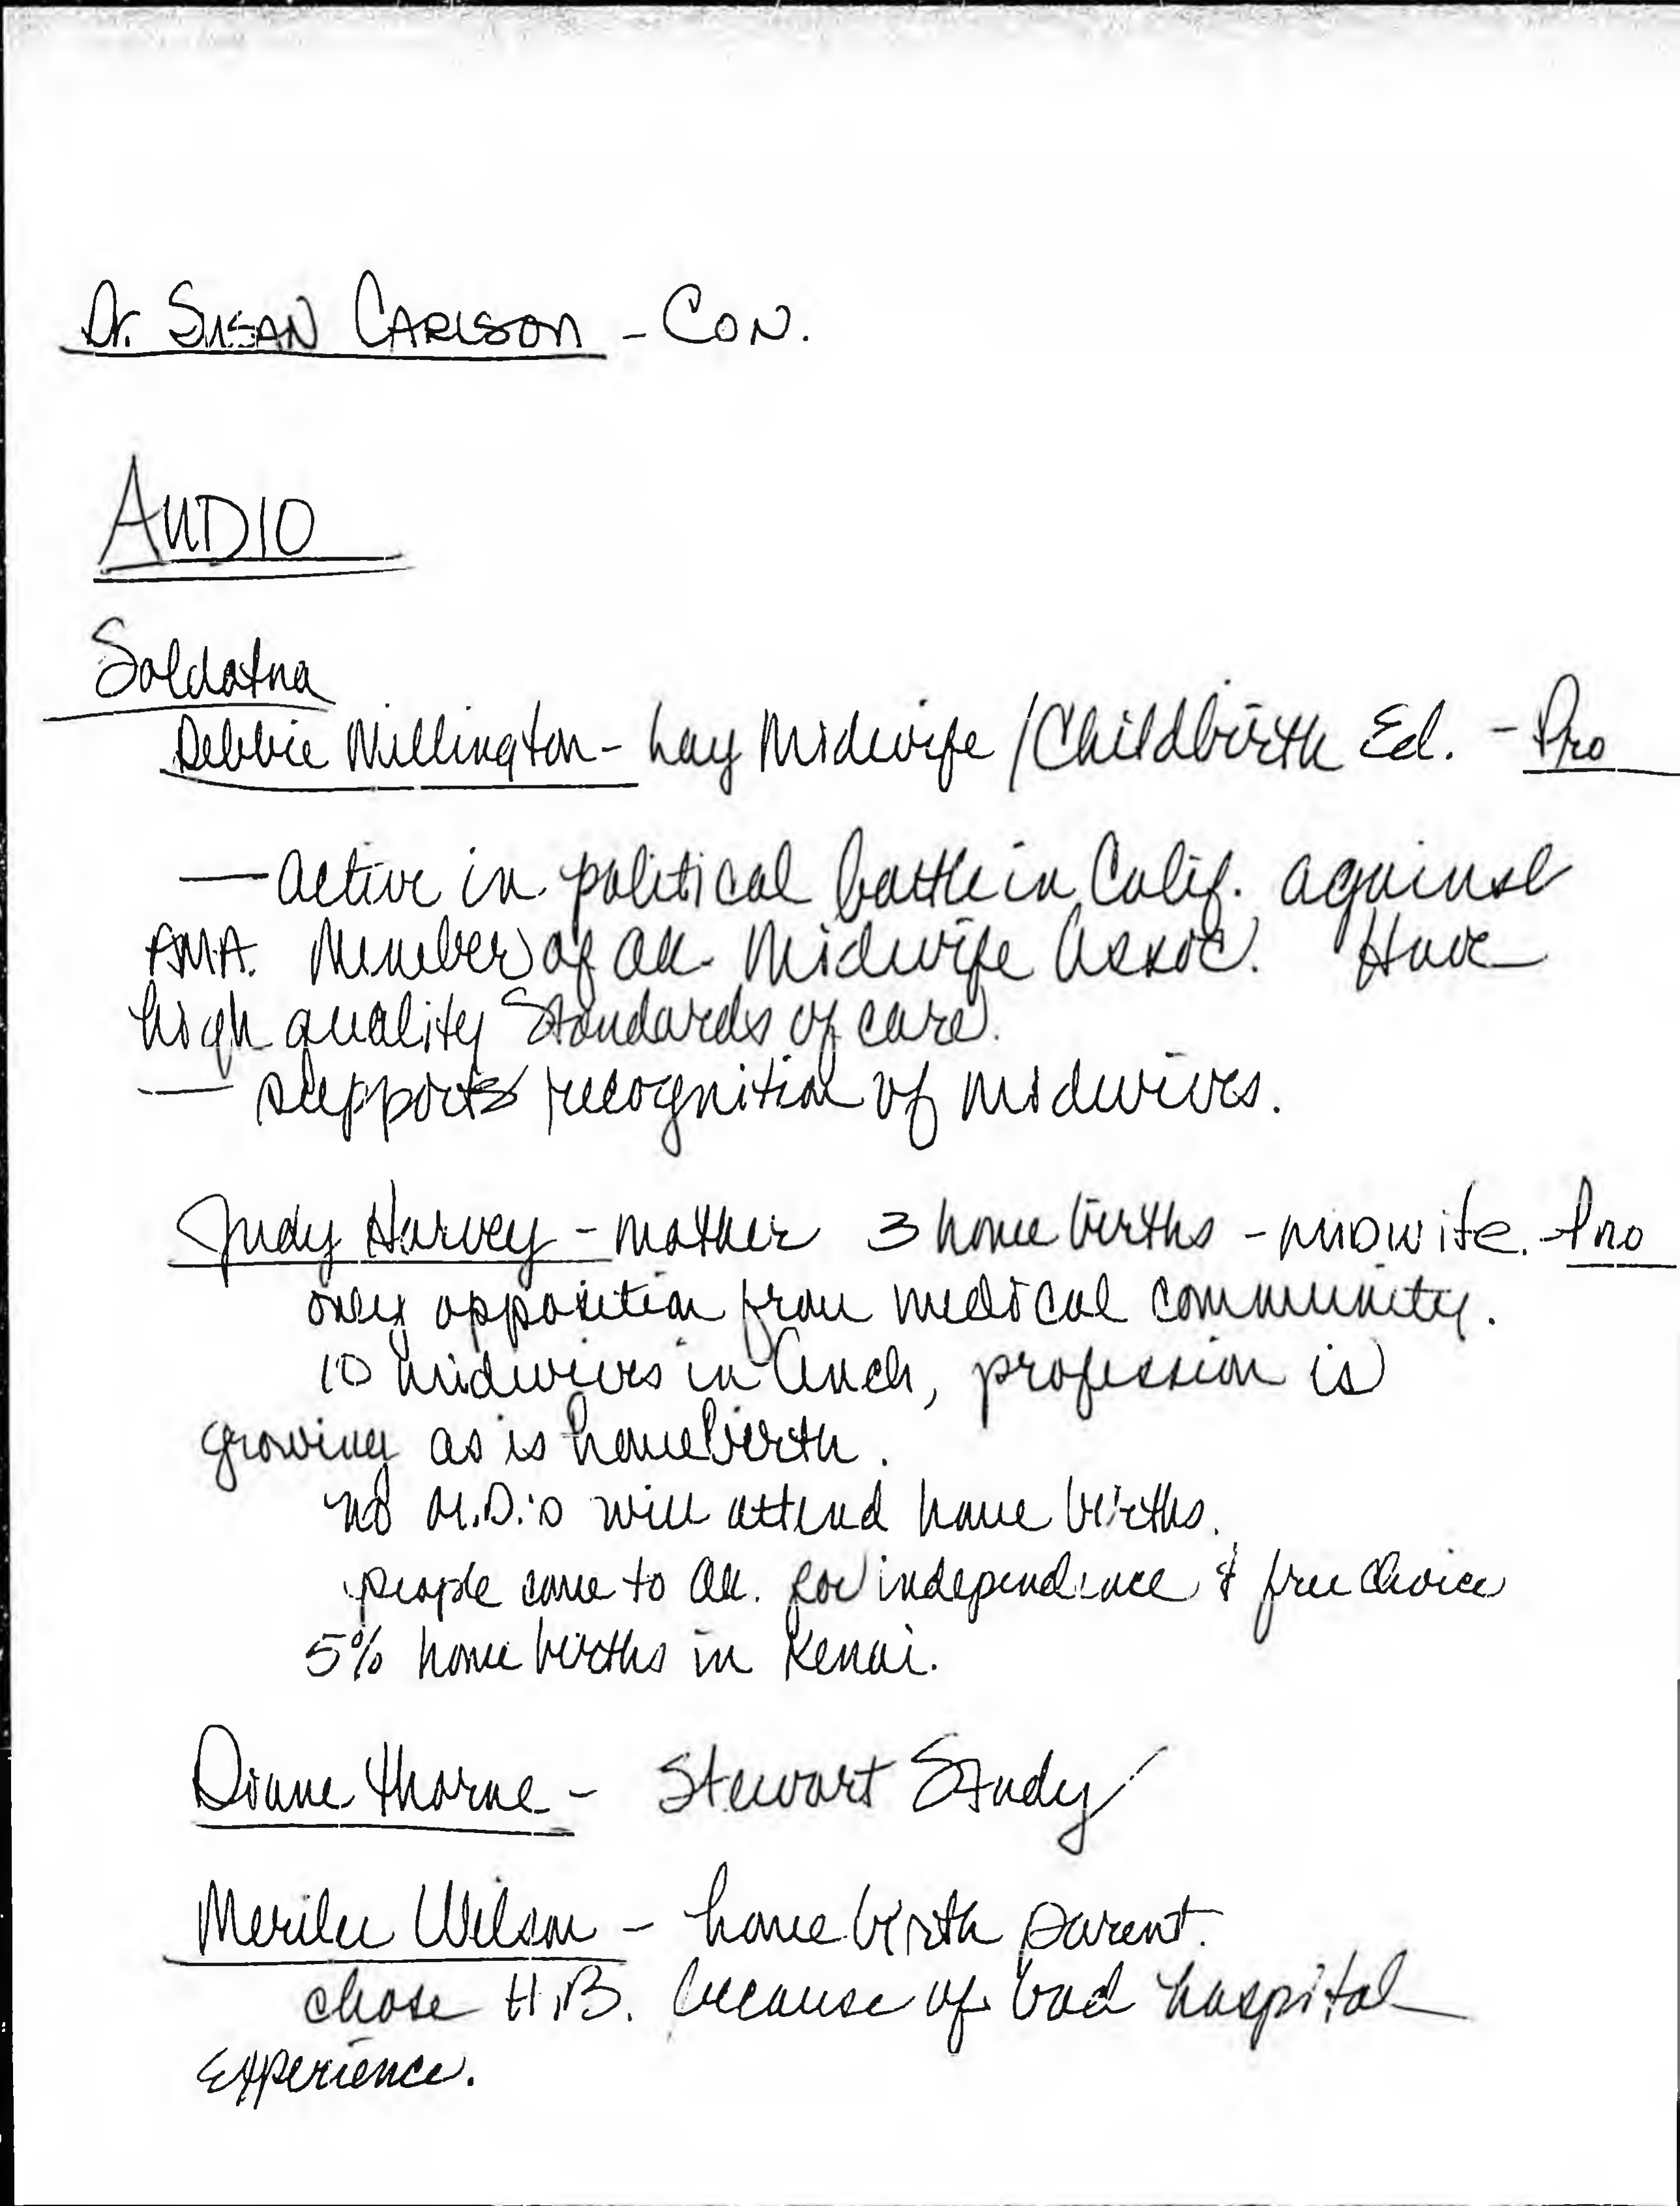 Dr. SUSAN CARLSON - CON.
AUDIO
Soldotna
Debbie Millington - Lay Midwife / Childbirth Ed. - Pro
— Active in political battle in Calif. against
AMA. Member of AK. Midwife Assoc. Have
high quality Standards of care.
— supports recognition of midwives.
Judy Harvey - mother 3 home births - midwife. - Pro
only opposition from medical community.
10 midwives in Anch, profession is
growing as is homebirth.
no M.D.'s will attend home births.
people come to AK. for independence & free choice
5% home births in Kenai.
Diane Thorne - Stewart Study
Merilee Wilson - home birth parent.
chose H.B. because of bad hospital
experience.